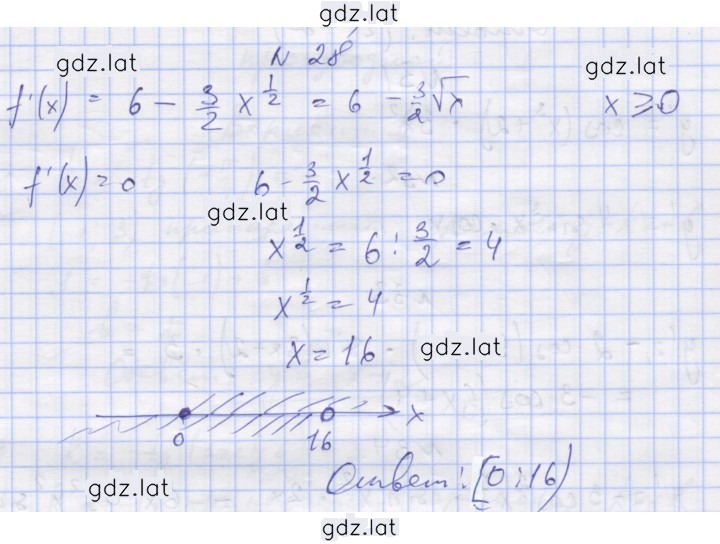 gdz.lat
N 28
gdz.lat gdz.lat
f'(x) = 6 - 3/2 x^(1/2) = 6 - 3/2 √x x ≥ 0
f'(x) = 0 6 - 3/2 x^(1/2) = 0
gdz.lat
x^(1/2) = 6 : 3/2 = 4
x^(1/2) = 4
x = 16 gdz.lat
x
0 16
Ответ: [0; 16)
gdz.lat
gdz.lat